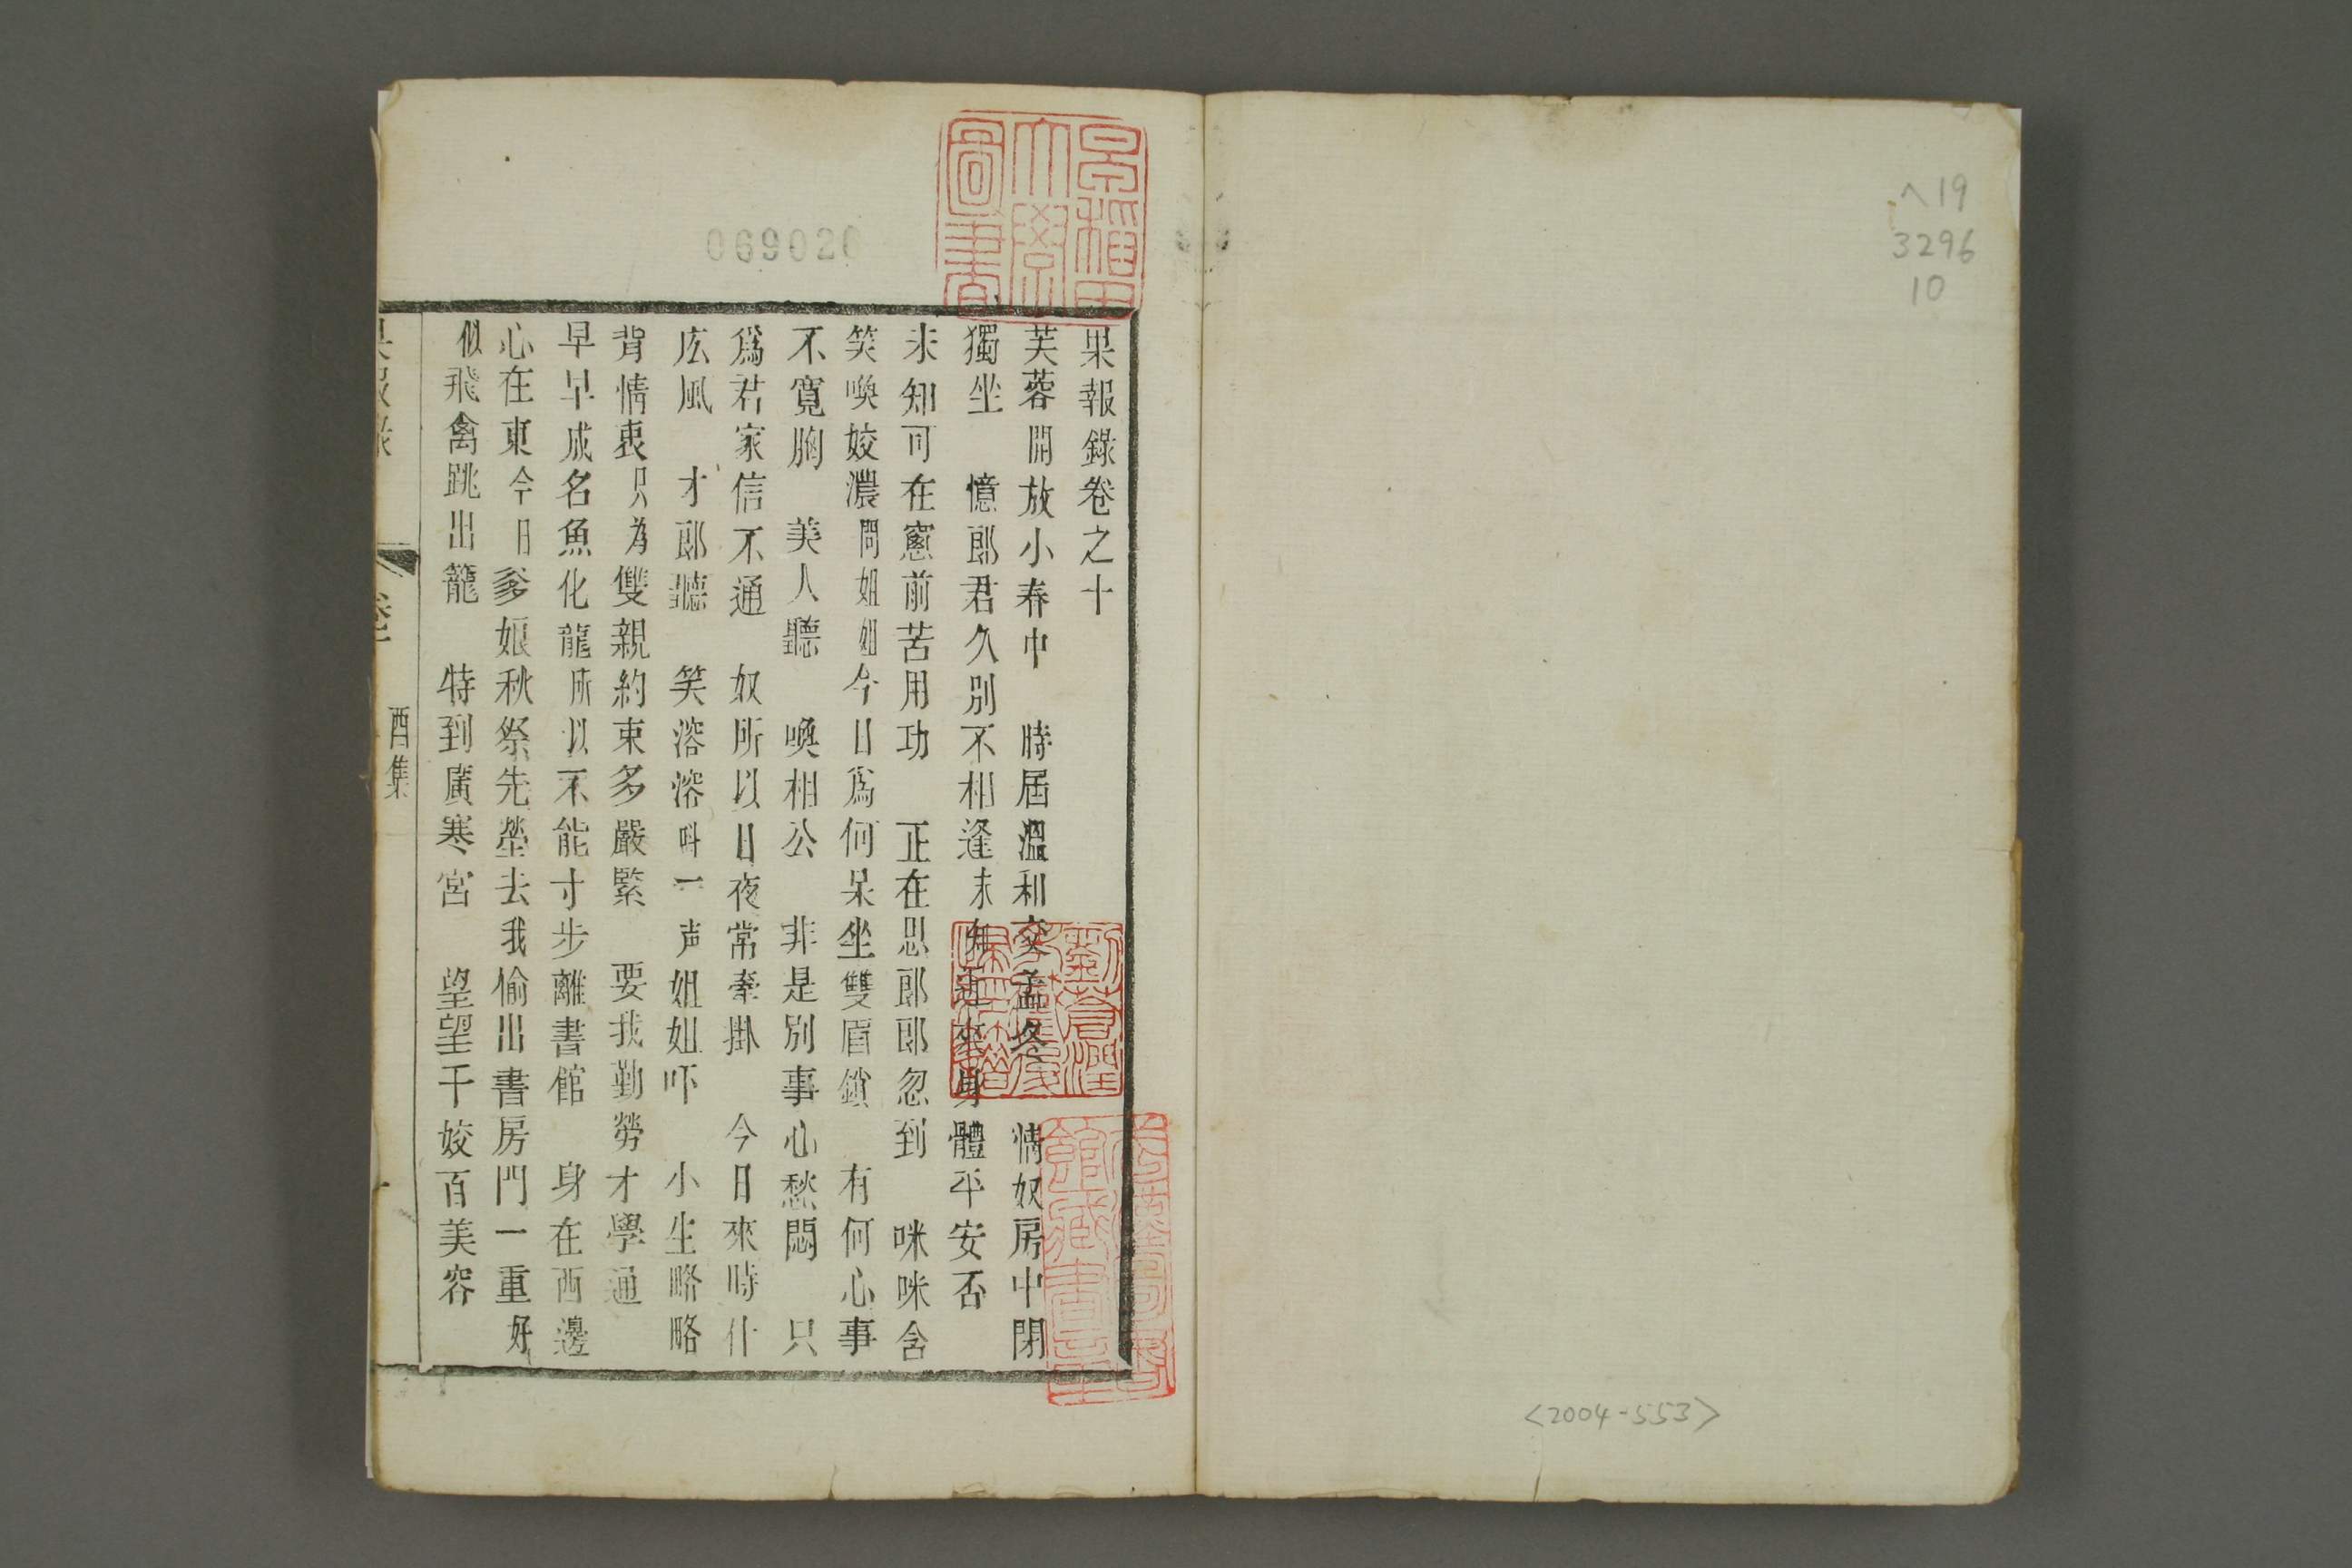 ヘ19
3296
10
<2004-553>
069020
果報錄卷之十
芙蓉開放小春中　時屆溫和交孟冬　情奴房中閉
獨坐　憶郎君久別不相逢未知近來身體平安否
未知可在窻前苦用功　正在思郎郎忽到　咪咪含
笑喚姣濃問姐姐今日爲何呆坐雙眉鎖　有何心事
不寬胸　美人聽　喚相公　非是別事心愁悶　只
爲君家信不通　奴所以日夜常牽掛　今日來時什
庅風　才郎聽　笑溶溶呌一声姐姐吓　小生略略
背情衷只为雙親約束多嚴緊　要我勤勞才學通
早早成名魚化龍所以不能寸步離書館　身在西邊
心在東今日爹娘秋祭先塋去我偷出書房門一重好
似飛禽跳出籠　特到廣寒宮　望望千姣百美容
酉集
早稻田大學圖書